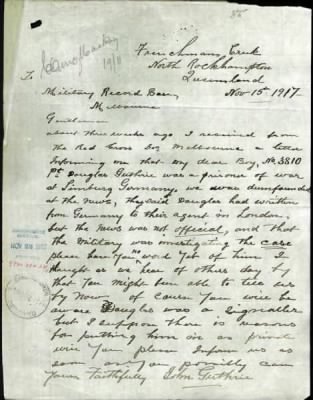 Frenchmans Creek
North Rockhampton
Queensland
To
Military Record
Nov 15th 1917-
Melbourne
Gentlemen
about three weeks ago I received from
the Red Cross Soc Melbourne a letter
Informing me that my dear Boy, No. 3810
Pte Douglas Guthrie was a prisoner of war
at Limburg Germany, we were dumfounded
at the News, they said Douglas had written
from Germany to their agent in London.
but the News was not official, and that
the Military was investigating the case
please have You no word Yet of him I
thought as we hear of others day by
that You might been able to tell us
by Now, of Course You will be
aware Douglas was a Signaller
but I suppose there is reasons
for putting him in as private
will You please Inform us as
soon as You possibly can
Yours Faithfully John Guthrie